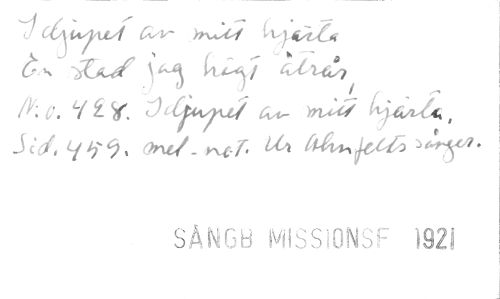 I djupet av mitt hjärta
En stad jag högt åtrår,
N:o. 428. I djupet av mitt hjärta,
Sid. 459. mel-not. Ur Ahnfelts sånger.
SÅNGB MISSIONSF 1921